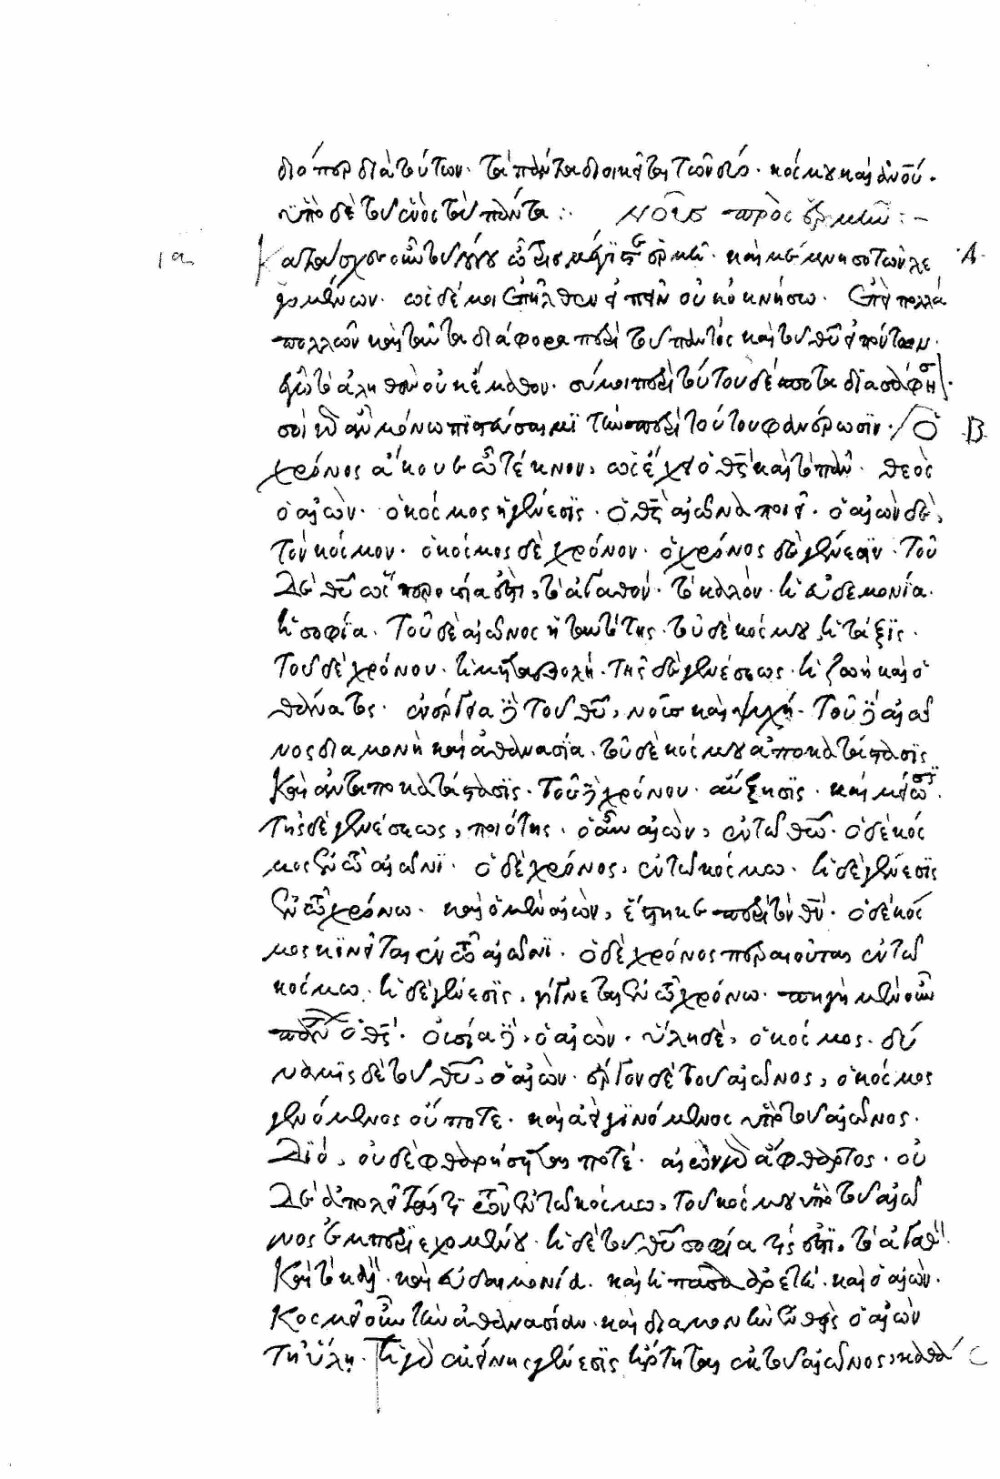 διόπερ διὰ τούτων· τὰ πάντα διοικεῖται τῶν διό· κόσμου καὶ ἀνου·
ὑπὸ δὲ τοῦ ἑνὸς τὰ πάντα :· νοῦς πρὸς ἑρμῆν :–
ια Κατάσχες οὖν τὸν λόγον ὦ τρισμέγιστε ἑρμῆ· καὶ μέμνησο τῶν λε A
γομένων· ὡς δέ μοι ἐπῆλθεν εἰπεῖν οὐκ ὀκνήσω· ἐπεὶ πολλὰ
πολλῶν καὶ ταῦτα διάφορα περὶ τοῦ παντὸς καὶ τοῦ θυ εἰπόντων·
ἐγὼ τὸ ἀληθὲς οὐκ ἔμαθον· σύ μοι περὶ τούτου δέσποτα διασάφησ
σοὶ γὰρ ἂν μόνω πιστεύσαιμι τὴν περὶ τούτου φανέρωσιν· Ὁ B
χρόνος ἄκουε ὦ τέκνον, ὡς ἔχει ὁ θς καὶ τὸ πᾶν· θεὸς
ὁ αἰών· ὁ κόσμος ἡ γένεσις· ὁ θς αἰῶνα ποιεῖ· ὁ αἰὼν δὲ,
τὸν κόσμον· ὁ κόσμος δὲ χρόνον· ὁ χρόνος δὲ γένεσιν· Τοῦ
δὲ θυ ὥσπερ οὐσία ἐστι, τὸ ἀγαθόν· τὸ καλὸν· ἡ εὐδεμονία·
ἡ σοφία· Τοῦ δὲ αἰῶνος ἡ ταυτότης· τοῦ δὲ κόσμου, ἡ τάξις·
Τοῦ δὲ χρόνου· ἡ μεταβολή· τῆς δὲ γενέσεως· ἡ ζωὴ καὶ ὁ
θάνατος· ἐνέργεια δὲ τοῦ θυ, νοῦς καὶ ψυχή· Τοῦ δὲ αἰῶ
νος διαμονὴ καὶ ἀθανασία· τοῦ δὲ κόσμου ἀποκατάστασις
Καὶ ἀνταποκατάστασις· Τοῦ δὲ χρόνου· αὔξησις· καὶ μείωσις·
Τῆς δὲ γενέσεως, ποιότης· ὁ οὖν αἰὼν, ἐν τῶ θω· ὁ δὲ κόσ
μος ἐν τῶ αἰῶνι· ὁ δὲ χρόνος, ἐν τῶ κόσμω· ἡ δὲ γένεσις
ἐν τῶ χρόνω· καὶ ὁ μὲν αἰὼν, ἕστηκε περὶ τὸν θν· ὁ δὲ κόσ
μος κινεῖται ἐν τῶ αἰῶνι· ὁ δὲ χρόνος περαιοῦται ἐν τῶ
κόσμω· ἡ δὲ γένεσις, γίνεται ἐν τῶ χρόνω· πηγὴ μὲν οὖν
πάντων ὁ θς· οὐσία δὲ, ὁ αἰὼν· ὕλη δὲ, ὁ κόσμος· δύ
ναμις δὲ τοῦ θυ, ὁ αἰὼν· ἔργον δὲ τοῦ αἰῶνος, ὁ κόσμος
γενόμενος οὔποτε· καὶ ἀεὶ γινόμενος ὑπὸ τοῦ αἰῶνος·
Διό, οὐδὲ φθαρήσεται ποτέ· αἰὼν γὰρ ἄφθαρτος· οὐ
δὲ ἀπολεῖταί τι τῶν ἐν τῶ κόσμω, τοῦ κόσμου ὑπὸ τοῦ αἰῶ
νος ἐμπεριεχομένου· ἡ δὲ τοῦ θυ σοφία τίς ἐστι, τὸ ἀγαθὸν·
Καὶ τὸ καλὸν· καὶ εὐδαιμονία· καὶ ἡ πᾶσα ἀρετὴ· καὶ ὁ αἰὼν·
Κοσμεῖ οὖν τὴν ἀθανασίαν· καὶ διαμονὴν ἐνθεὶς ὁ αἰὼν
τῆ ὕλη· Ἡ γὰρ ἐκείνης γένεσις ἤρτηται ἐκ τοῦ αἰῶνος, καθά C